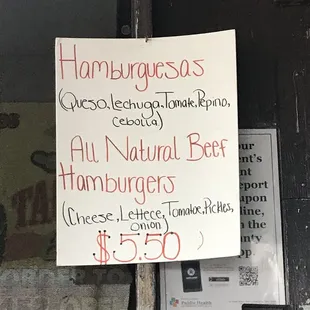 Hamburguesas
(Queso, Lechuga, Tomate, Pepino,
cebolla)
All Natural Beef
Hamburgers
(Cheese, Lettece, Tomatoe, Pickles,
onion)
$5.50
our
ent's
nt
eport
upon
line,
the
unty
Public Health